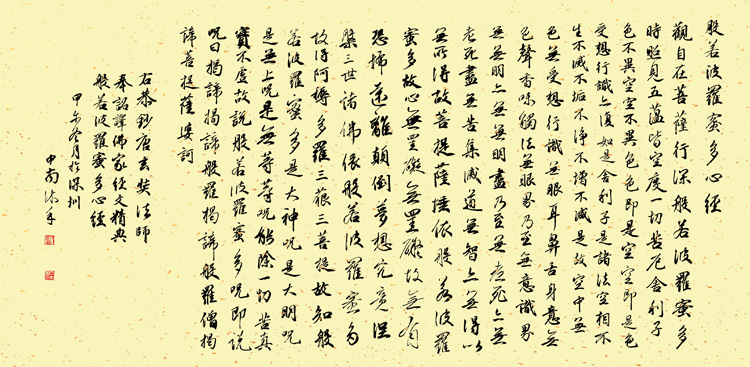 般若波羅蜜多心經
觀自在菩薩行深般若波羅蜜多
時照見五蘊皆空度一切苦厄舍利子
色不異空空不異色色即是空空即是色
受想行識亦復如是舍利子是諸法空相不
生不滅不垢不淨不增不減是故空中無
色無受想行識無眼耳鼻舌身意無
色聲香味觸法無眼界乃至無意識界
無無明亦無無明盡乃至無老死亦無
老死盡無苦集滅道無智亦無得以
無所得故菩提薩埵依般若波羅
蜜多故心無罣礙無罣礙故無有
恐怖遠離顛倒夢想究竟涅
槃三世諸佛依般若波羅蜜多
故得阿耨多羅三藐三菩提故知般
若波羅蜜多是大神咒是大明咒
是無上咒是無等等咒能除一切苦真
實不虛故說般若波羅蜜多咒即說
咒曰揭諦揭諦般羅揭諦般羅僧揭
諦菩提薩婆訶
右恭鈔唐玄奘法師
奉詔譯佛家經文精典
般若波羅蜜多心經
甲午冬月於深圳
中南